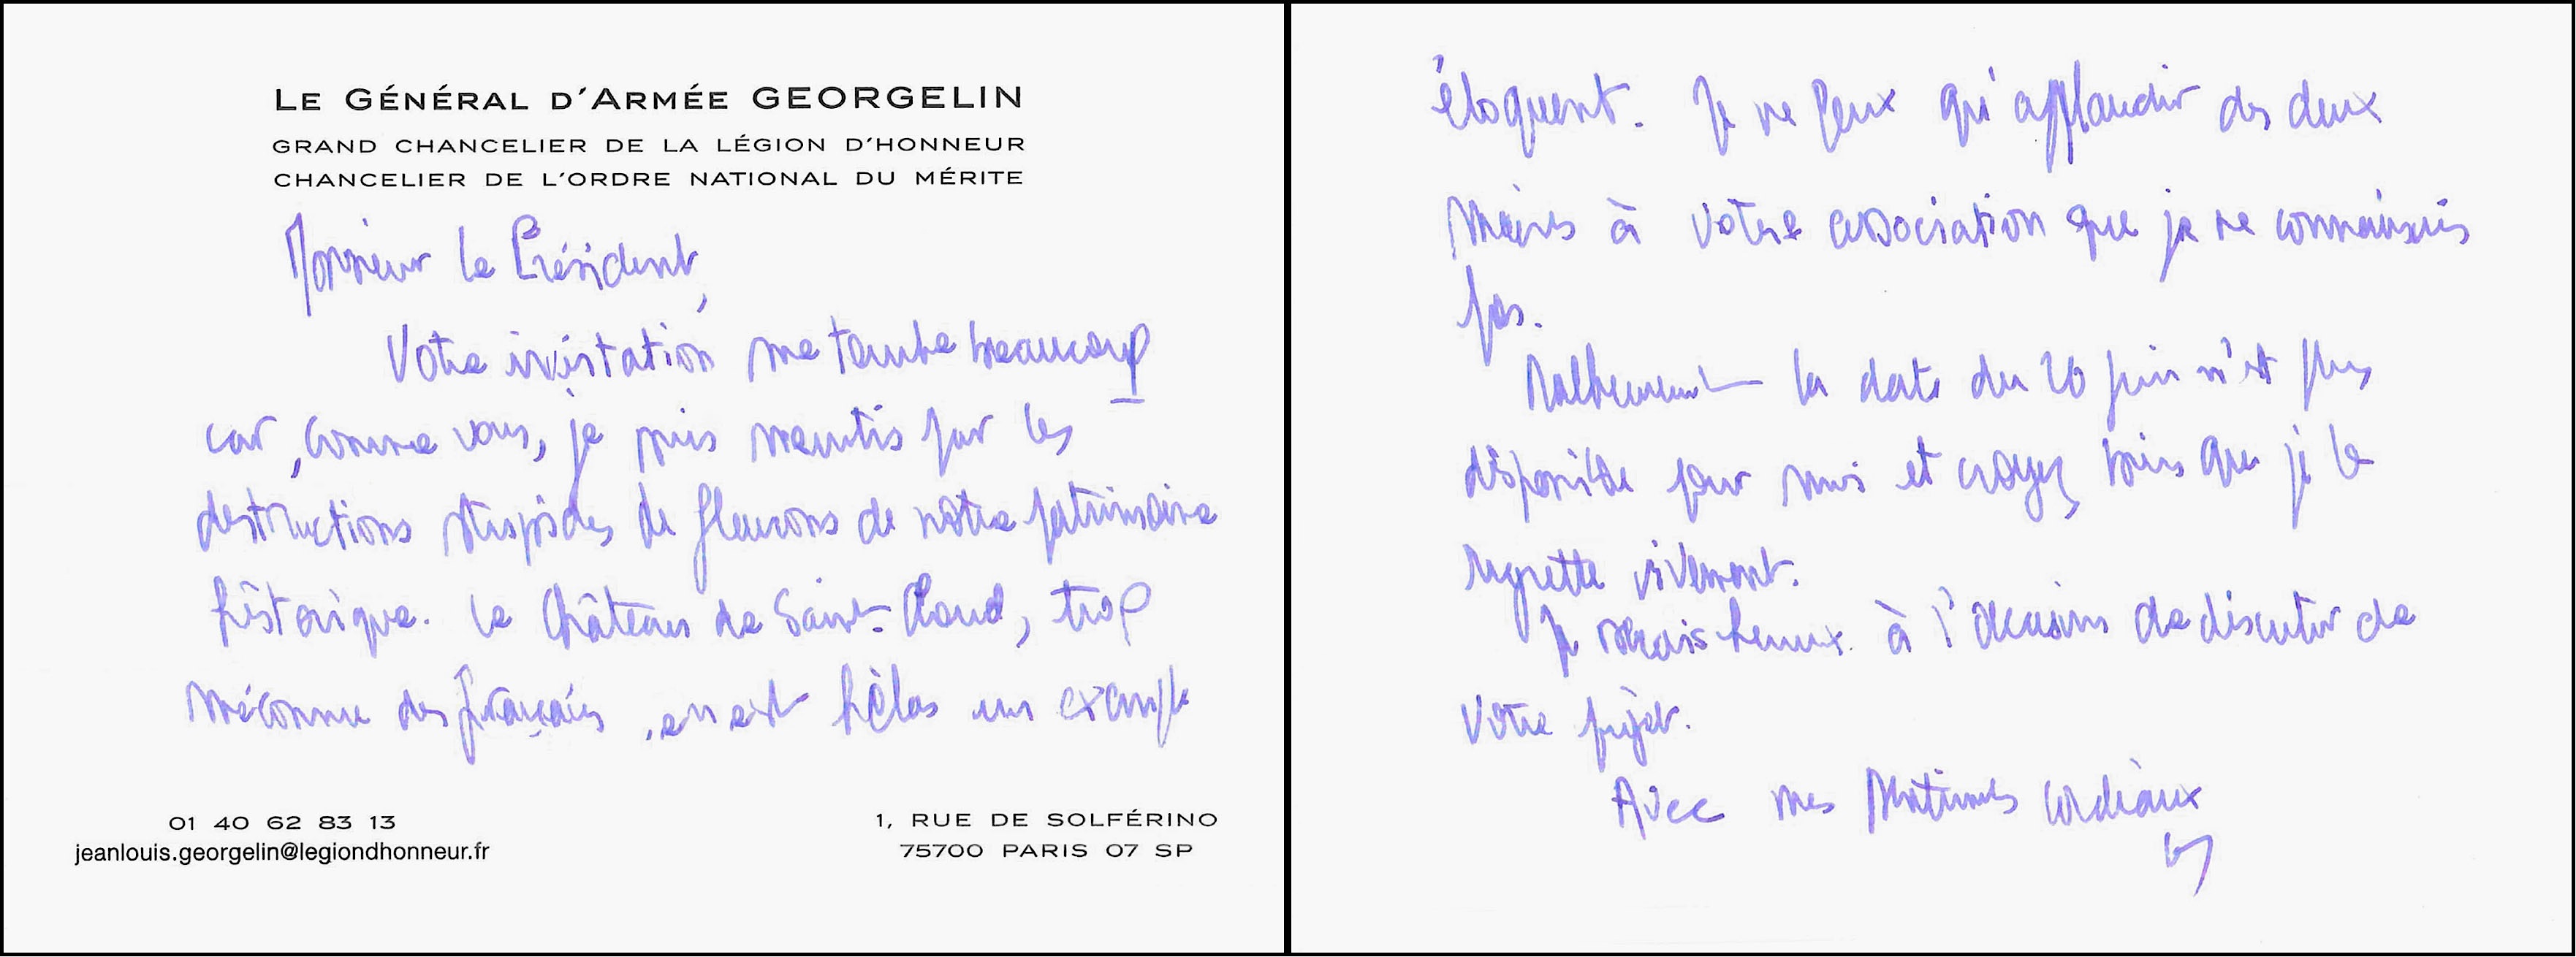 LE GÉNÉRAL D'ARMÉE GEORGELIN
GRAND CHANCELIER DE LA LÉGION D'HONNEUR
CHANCELIER DE L'ORDRE NATIONAL DU MÉRITE
Monsieur le Président,
Votre invitation me touche beaucoup
car, comme vous, je suis meurtri par les
destructions stupides de fleurons de notre patrimoine
historique. Le Château de Saint-Cloud, trop
méconnu des français, en est hélas un exemple
01 40 62 83 13
jeanlouis.georgelin@legiondhonneur.fr
1, RUE DE SOLFÉRINO
75700 PARIS 07 SP
éloquent. Je ne peux qu'applaudir des deux
mains à votre association que je ne connaissais
pas.
Malheureusement la date du 20 juin n'est plus
disponible pour moi et croyez bien que je le
regrette vivement.
Je serais heureux à l'occasion de discuter de
votre projet.
Avec mes sentiments cordiaux